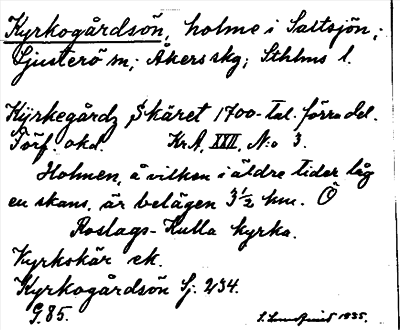 Kyrkogårdsön, holme i Saltsjön;
Ljusterö sn; Åkers skg; Sthlms l.
Kÿrkegårdz Skäret 1700-tal. förra del.
Förf. okd. Kr A, XXII, N:o 3.
Holmen, å vilken i äldre tider låg
en skans, är belägen 3½ km. Ö
Roslags-Kulla kyrka.
Kyrkskär ek.
Kyrkogårdsön Sj. 234.
G. 85.
1935.